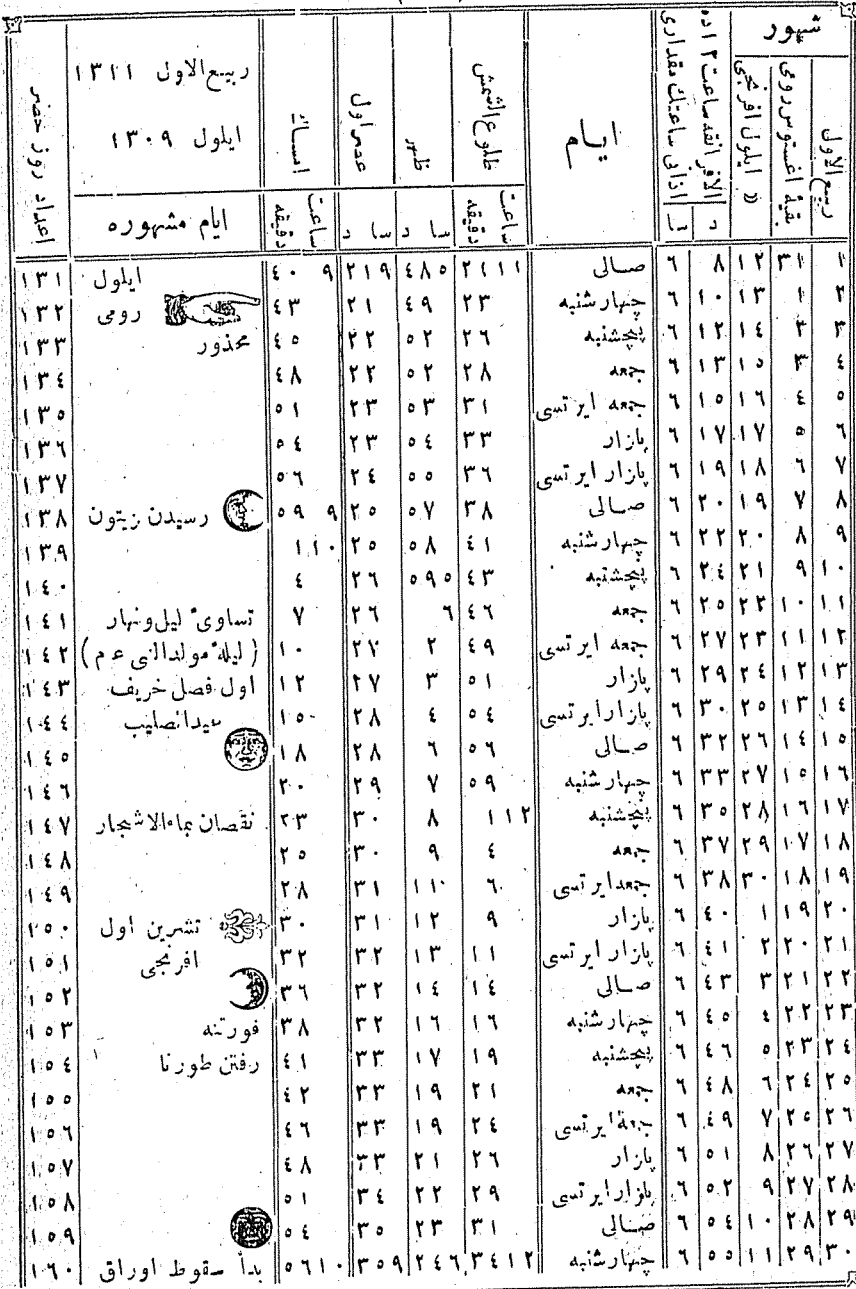 شهور
ربیع الاول
بقیهٔ اغستوس رومی
« ایلول افرنجی
الافرانقه ساعت ١٢ ده اذانی ساعتك مقداری
د سا
ایام
طلوع الشمش
ساعت دقیقه
ظهر
سا د
عصر اول
سا د
امساك
ساعت دقیقه
ربیع الاول ١٣١١
ایلول ١٣٠٩
ایام مشهوره
اعداد روز خضر
١ ٣١ ١٢ ٨ ٦ صالی ١١ ٢١ ٥ ٤٨ ٩ ٢١ ٩ ٤٠ ایلول ١٣١
٢ ١ ١٣ ١٠ ٦ چهارشنبه ٢٣ ٤٩ ٢١ ٤٣ رومی ١٣٢
٣ ٢ ١٤ ١٢ ٦ پنجشنبه ٢٦ ٥٢ ٢٢ ٤٥ محذور ١٣٣
٤ ٣ ١٥ ١٣ ٦ جمعه ٢٨ ٥٢ ٢٢ ٤٨ ١٣٤
٥ ٤ ١٦ ١٥ ٦ جمعه ایرتسی ٣١ ٥٣ ٢٣ ٥١ ١٣٥
٦ ٥ ١٧ ١٧ ٦ پازار ٣٣ ٥٤ ٢٣ ٥٤ ١٣٦
٧ ٦ ١٨ ١٩ ٦ پازار ایرتسی ٣٦ ٥٥ ٢٤ ٥٦ ١٣٧
٨ ٧ ١٩ ٢٠ ٦ صالی ٣٨ ٥٧ ٢٥ ٩ ٥٩ رسیدن زیتون ١٣٨
٩ ٨ ٢٠ ٢٢ ٦ چهارشنبه ٤١ ٥٨ ٢٥ ١٠ ١ ١٣٩
١٠ ٩ ٢١ ٢٤ ٦ پنجشنبه ٤٣ ٥ ٥٩ ٢٦ ٤ ١٤٠
١١ ١٠ ٢٢ ٢٥ ٦ جمعه ٤٦ ٦ ٢٦ ٧ تساوئ لیل ونهار ١٤١
١٢ ١١ ٢٣ ٢٧ ٦ جمعه ایرتسی ٤٩ ٢ ٢٧ ١٠ (لیلهٔ مولد النی ع م) ١٤٢
١٣ ١٢ ٢٤ ٢٩ ٦ پازار ٥١ ٣ ٢٧ ١٢ اول فصل خریف ١٤٣
١٤ ١٣ ٢٥ ٣٠ ٦ پازار ایرتسی ٥٤ ٤ ٢٨ ١٥ عیدالصلیب ١٤٤
١٥ ١٤ ٢٦ ٣٢ ٦ صالی ٥٦ ٦ ٢٨ ١٨ ١٤٥
١٦ ١٥ ٢٧ ٣٣ ٦ چهارشنبه ٥٩ ٧ ٢٩ ٢٠ ١٤٦
١٧ ١٦ ٢٨ ٣٥ ٦ پنجشنبه ١٢ ١ ٨ ٣٠ ٢٣ نقصان ماءالاشجار ١٤٧
١٨ ١٧ ٢٩ ٣٧ ٦ جمعه ٤ ٩ ٣٠ ٢٥ ١٤٨
١٩ ١٨ ٣٠ ٣٨ ٦ جمعه ایرتسی ٦ ١١ ٣١ ٢٨ ١٤٩
٢٠ ١٩ ١ ٤٠ ٦ پازار ٩ ١٢ ٣١ ٣٠ تشرین اول ١٥٠
٢١ ٢٠ ٢ ٤١ ٦ پازار ایرتسی ١١ ١٣ ٣٢ ٣٢ افرنجی ١٥١
٢٢ ٢١ ٣ ٤٣ ٦ صالی ١٤ ١٤ ٣٢ ٣٦ ١٥٢
٢٣ ٢٢ ٤ ٤٥ ٦ چهارشنبه ١٦ ١٦ ٣٢ ٣٨ فورتنه ١٥٣
٢٤ ٢٣ ٥ ٤٦ ٦ پنجشنبه ١٩ ١٧ ٣٣ ٤١ رفتن طورنا ١٥٤
٢٥ ٢٤ ٦ ٤٨ ٦ جمعه ٢١ ١٩ ٣٣ ٤٢ ١٥٥
٢٦ ٢٥ ٧ ٤٩ ٦ جمعهٔ ایرتسی ٢٤ ١٩ ٣٣ ٤٦ ١٥٦
٢٧ ٢٦ ٨ ٥١ ٦ پازار ٢٦ ٢١ ٣٣ ٤٨ ١٥٧
٢٨ ٢٧ ٩ ٥٢ ٦ پازار ایرتسی ٢٩ ٢٢ ٣٤ ٥١ ١٥٨
٢٩ ٢٨ ١٠ ٥٤ ٦ صالی ٣١ ٢٣ ٣٥ ٥٤ ١٥٩
٣٠ ٢٩ ١١ ٥٥ ٦ چهارشنبه ١٢ ٣٤ ٦ ٢٤ ٩ ٣٥ ١٠ ٥٦ بدأ سقوط اوراق ١٦٠